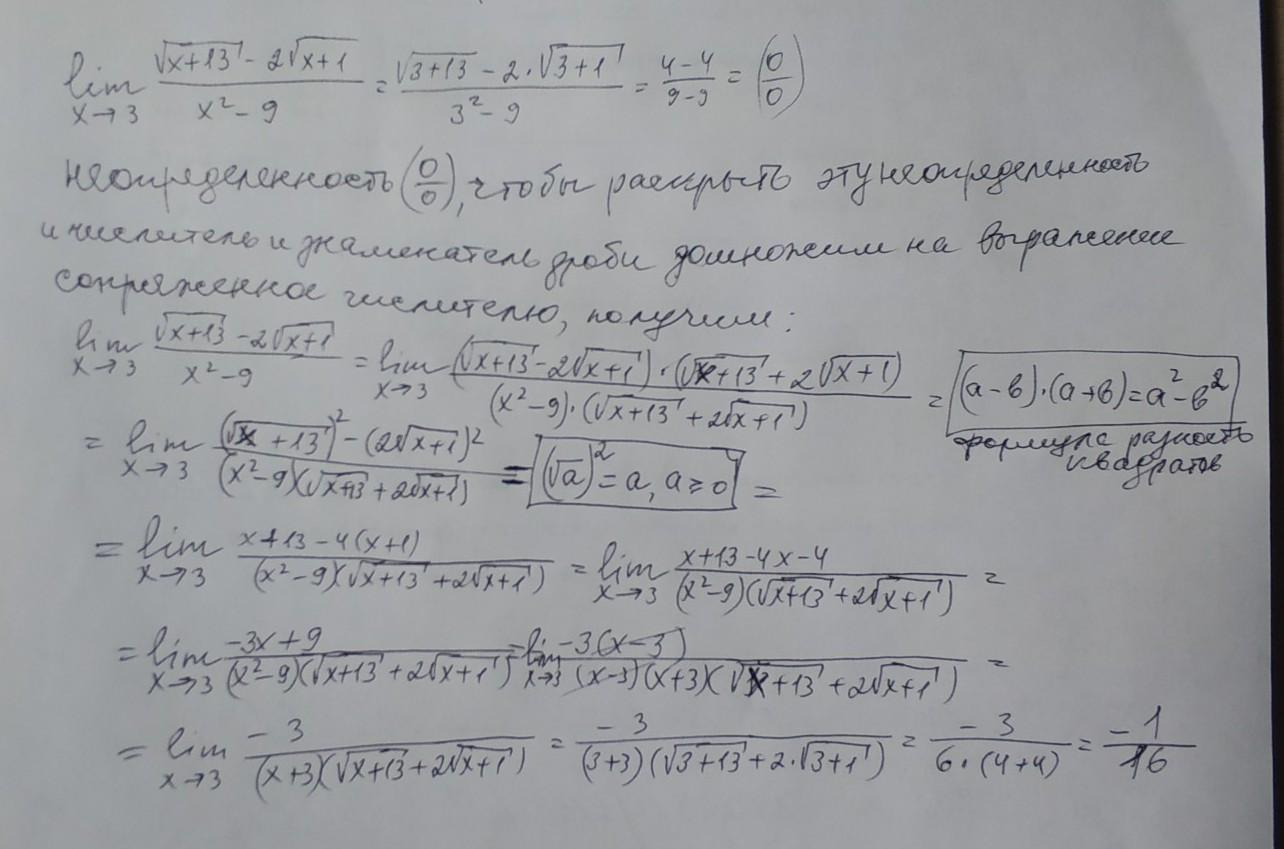 lim x→3 (√(x+13) - 2√(x+1))/(x² - 9) = (√(3+13) - 2·√(3+1))/(3² - 9) = (4-4)/(9-9) = (0/0)
неопределенность (0/0), чтобы раскрыть эту неопределенность
и числитель и знаменатель дроби домножим на выражение
сопряженное числителю, получим:
lim x→3 (√(x+13) - 2√(x+1))/(x²-9) = lim x→3 ((√(x+13) - 2√(x+1))·(√(x+13) + 2√(x+1)))/((x²-9)·(√(x+13) + 2√(x+1))) = (a-b)·(a+b) = a²-b²
формула разность
квадратов
= lim x→3 ((√(x+13))² - (2√(x+1))²)/((x²-9)(√(x+13) + 2√(x+1))) = (√a)² = a, a≥0 =
= lim x→3 (x+13-4(x+1))/((x²-9)(√(x+13) + 2√(x+1))) = lim x→3 (x+13-4x-4)/((x²-9)(√(x+13) + 2√(x+1))) =
= lim x→3 (-3x+9)/((x²-9)(√(x+13) + 2√(x+1))) = lim x→3 (-3(x-3))/((x-3)(x+3)(√(x+13) + 2√(x+1))) =
= lim x→3 (-3)/((x+3)(√(x+13) + 2√(x+1))) = (-3)/((3+3)(√(3+13) + 2·√(3+1))) = (-3)/(6·(4+4)) = (-1)/16